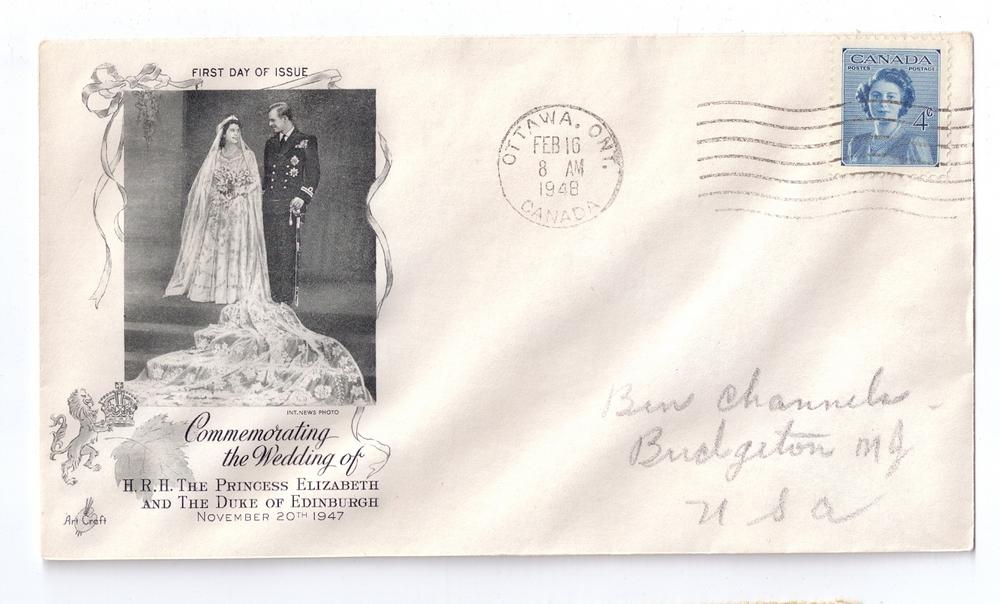 FIRST DAY OF ISSUE
INT. NEWS PHOTO
Commemorating
the Wedding of
H.R.H. THE PRINCESS ELIZABETH
AND THE DUKE OF EDINBURGH
NOVEMBER 20TH 1947
Art Craft
OTTAWA, ONT.
FEB 16
8 AM
1948
CANADA
CANADA
POSTES POSTAGE
4¢
Ben
Bridgeton NJ
U S a